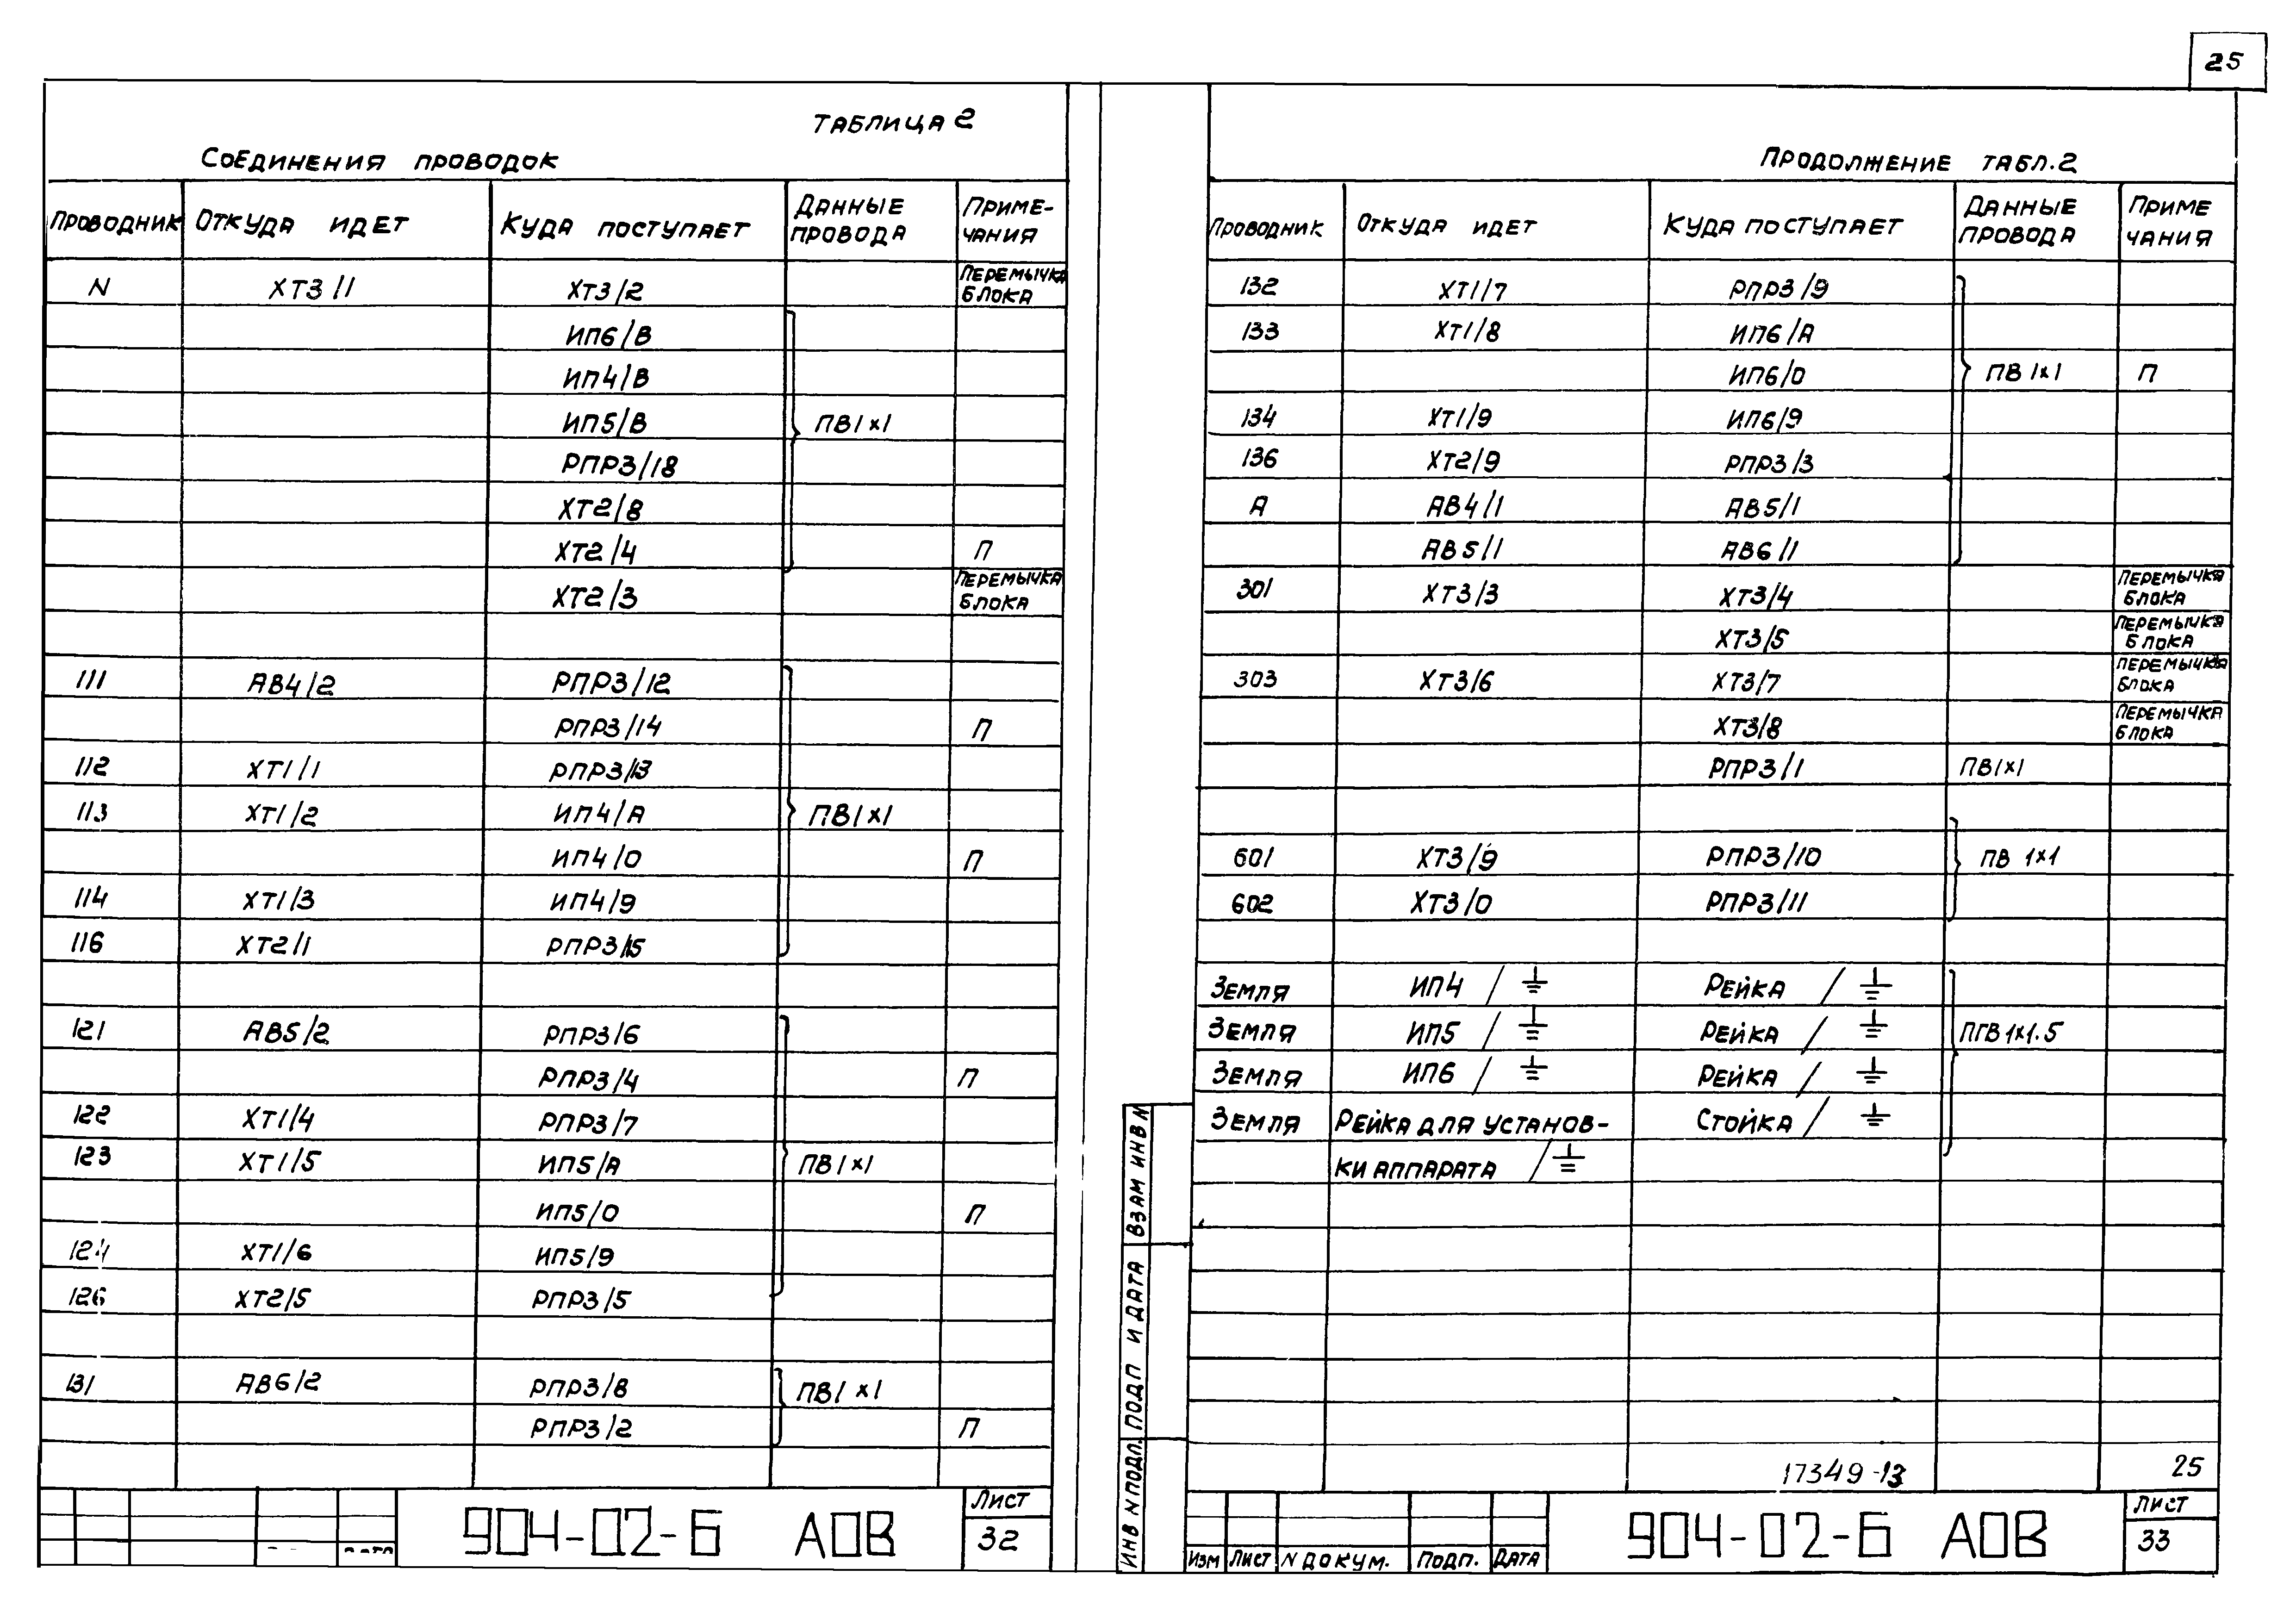 25
Таблица 2
Соединения проводок
Проводник Откуда идет Куда поступает Данные провода Приме-чания
N ХТ3/1 ХТ3/2 Перемычка блока
ИП6/В
ИП4/В
ИП5/В ПВ1х1
РПР3/18
ХТ2/8
ХТ2/4 П
ХТ2/3 Перемычка блока
111 АВ4/2 РПР3/12
РПР3/14 П
112 ХТ1/1 РПР3/13
113 ХТ1/2 ИП4/А ПВ1х1
ИП4/0 П
114 ХТ1/3 ИП4/9
116 ХТ2/1 РПР3/15
121 АВ5/2 РПР3/6
РПР3/4 П
122 ХТ1/4 РПР3/7
123 ХТ1/5 ИП5/А ПВ1х1
ИП5/0 П
124 ХТ1/6 ИП5/9
126 ХТ2/5 РПР3/5
131 АВ6/2 РПР3/8 ПВ1х1
РПР3/2 П
904-02-6 АОВ
Лист
32
Продолжение табл.2
Проводник Откуда идет Куда поступает Данные провода Приме чания
132 ХТ1/7 РПР3/9
133 ХТ1/8 ИП6/А
ИП6/0 ПВ1х1 П
134 ХТ1/9 ИП6/9
136 ХТ2/9 РПР3/3
А АВ4/1 АВ5/1
АВ5/1 АВ6/1
301 ХТ3/3 ХТ3/4 Перемычка блока
ХТ3/5 Перемычка блока
303 ХТ3/6 ХТ3/7 Перемычка блока
ХТ3/8 Перемычка блока
РПР3/1 ПВ1х1
601 ХТ3/9 РПР3/10 ПВ 1х1
602 ХТ3/0 РПР3/11
Земля ИП4/⏚ Рейка/⏚
Земля ИП5/⏚ Рейка/⏚ ПГВ1х1.5
Земля ИП6/⏚ Рейка/⏚
Земля Рейка для установ- Стойка/⏚
ки аппарата/⏚
17349-13 25
904-02-6 АОВ
Лист
33
Изм Лист N докум. Подп. Дата
Инв N подл. Подп и дата Взам инв N